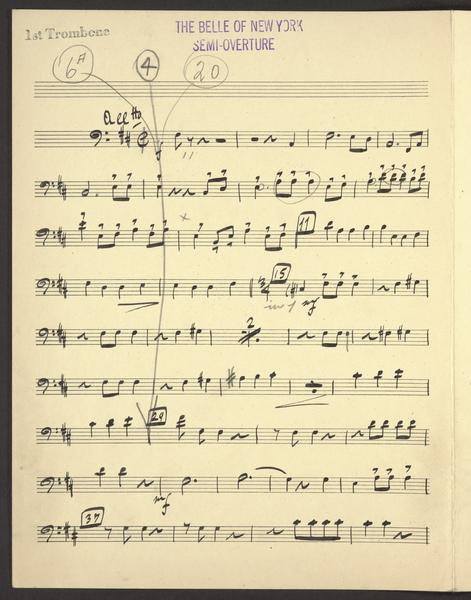 1st Trombone
THE BELLE OF NEW YORK
SEMI-OVERTURE
6A 4 20
All tto
11
15
mf
2
29
mf
37